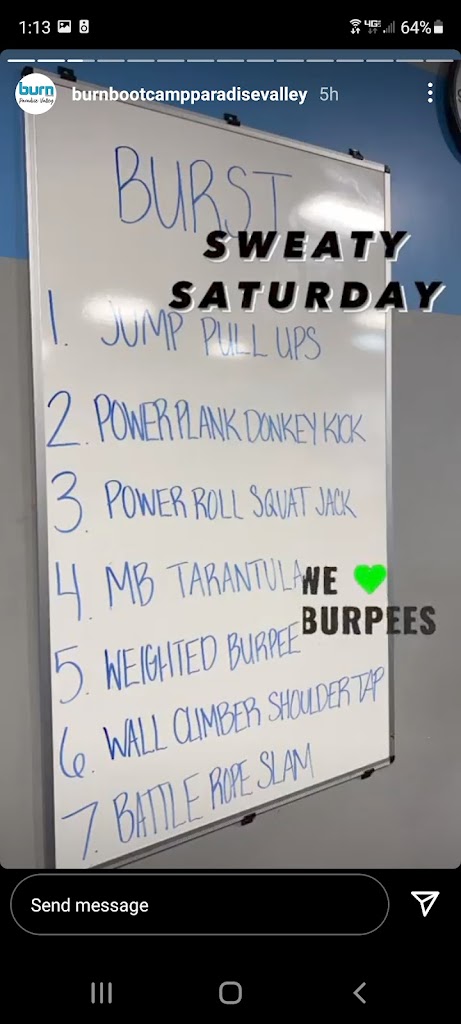 1:13
4GE
64%
burn
Paradise Valley
burnbootcampparadisevalley 5h
BURST
SWEATY
SATURDAY
1. JUMP PULL UPS
2. POWER PLANK DONKEY KICK
3. POWER ROLL SQUAT JACK
4. MB TARANTULA
WE 💚
BURPEES
5. WEIGHTED BURPEE
6. WALL CLIMBER SHOULDER TAP
7. BATTLE ROPE SLAM
Send message